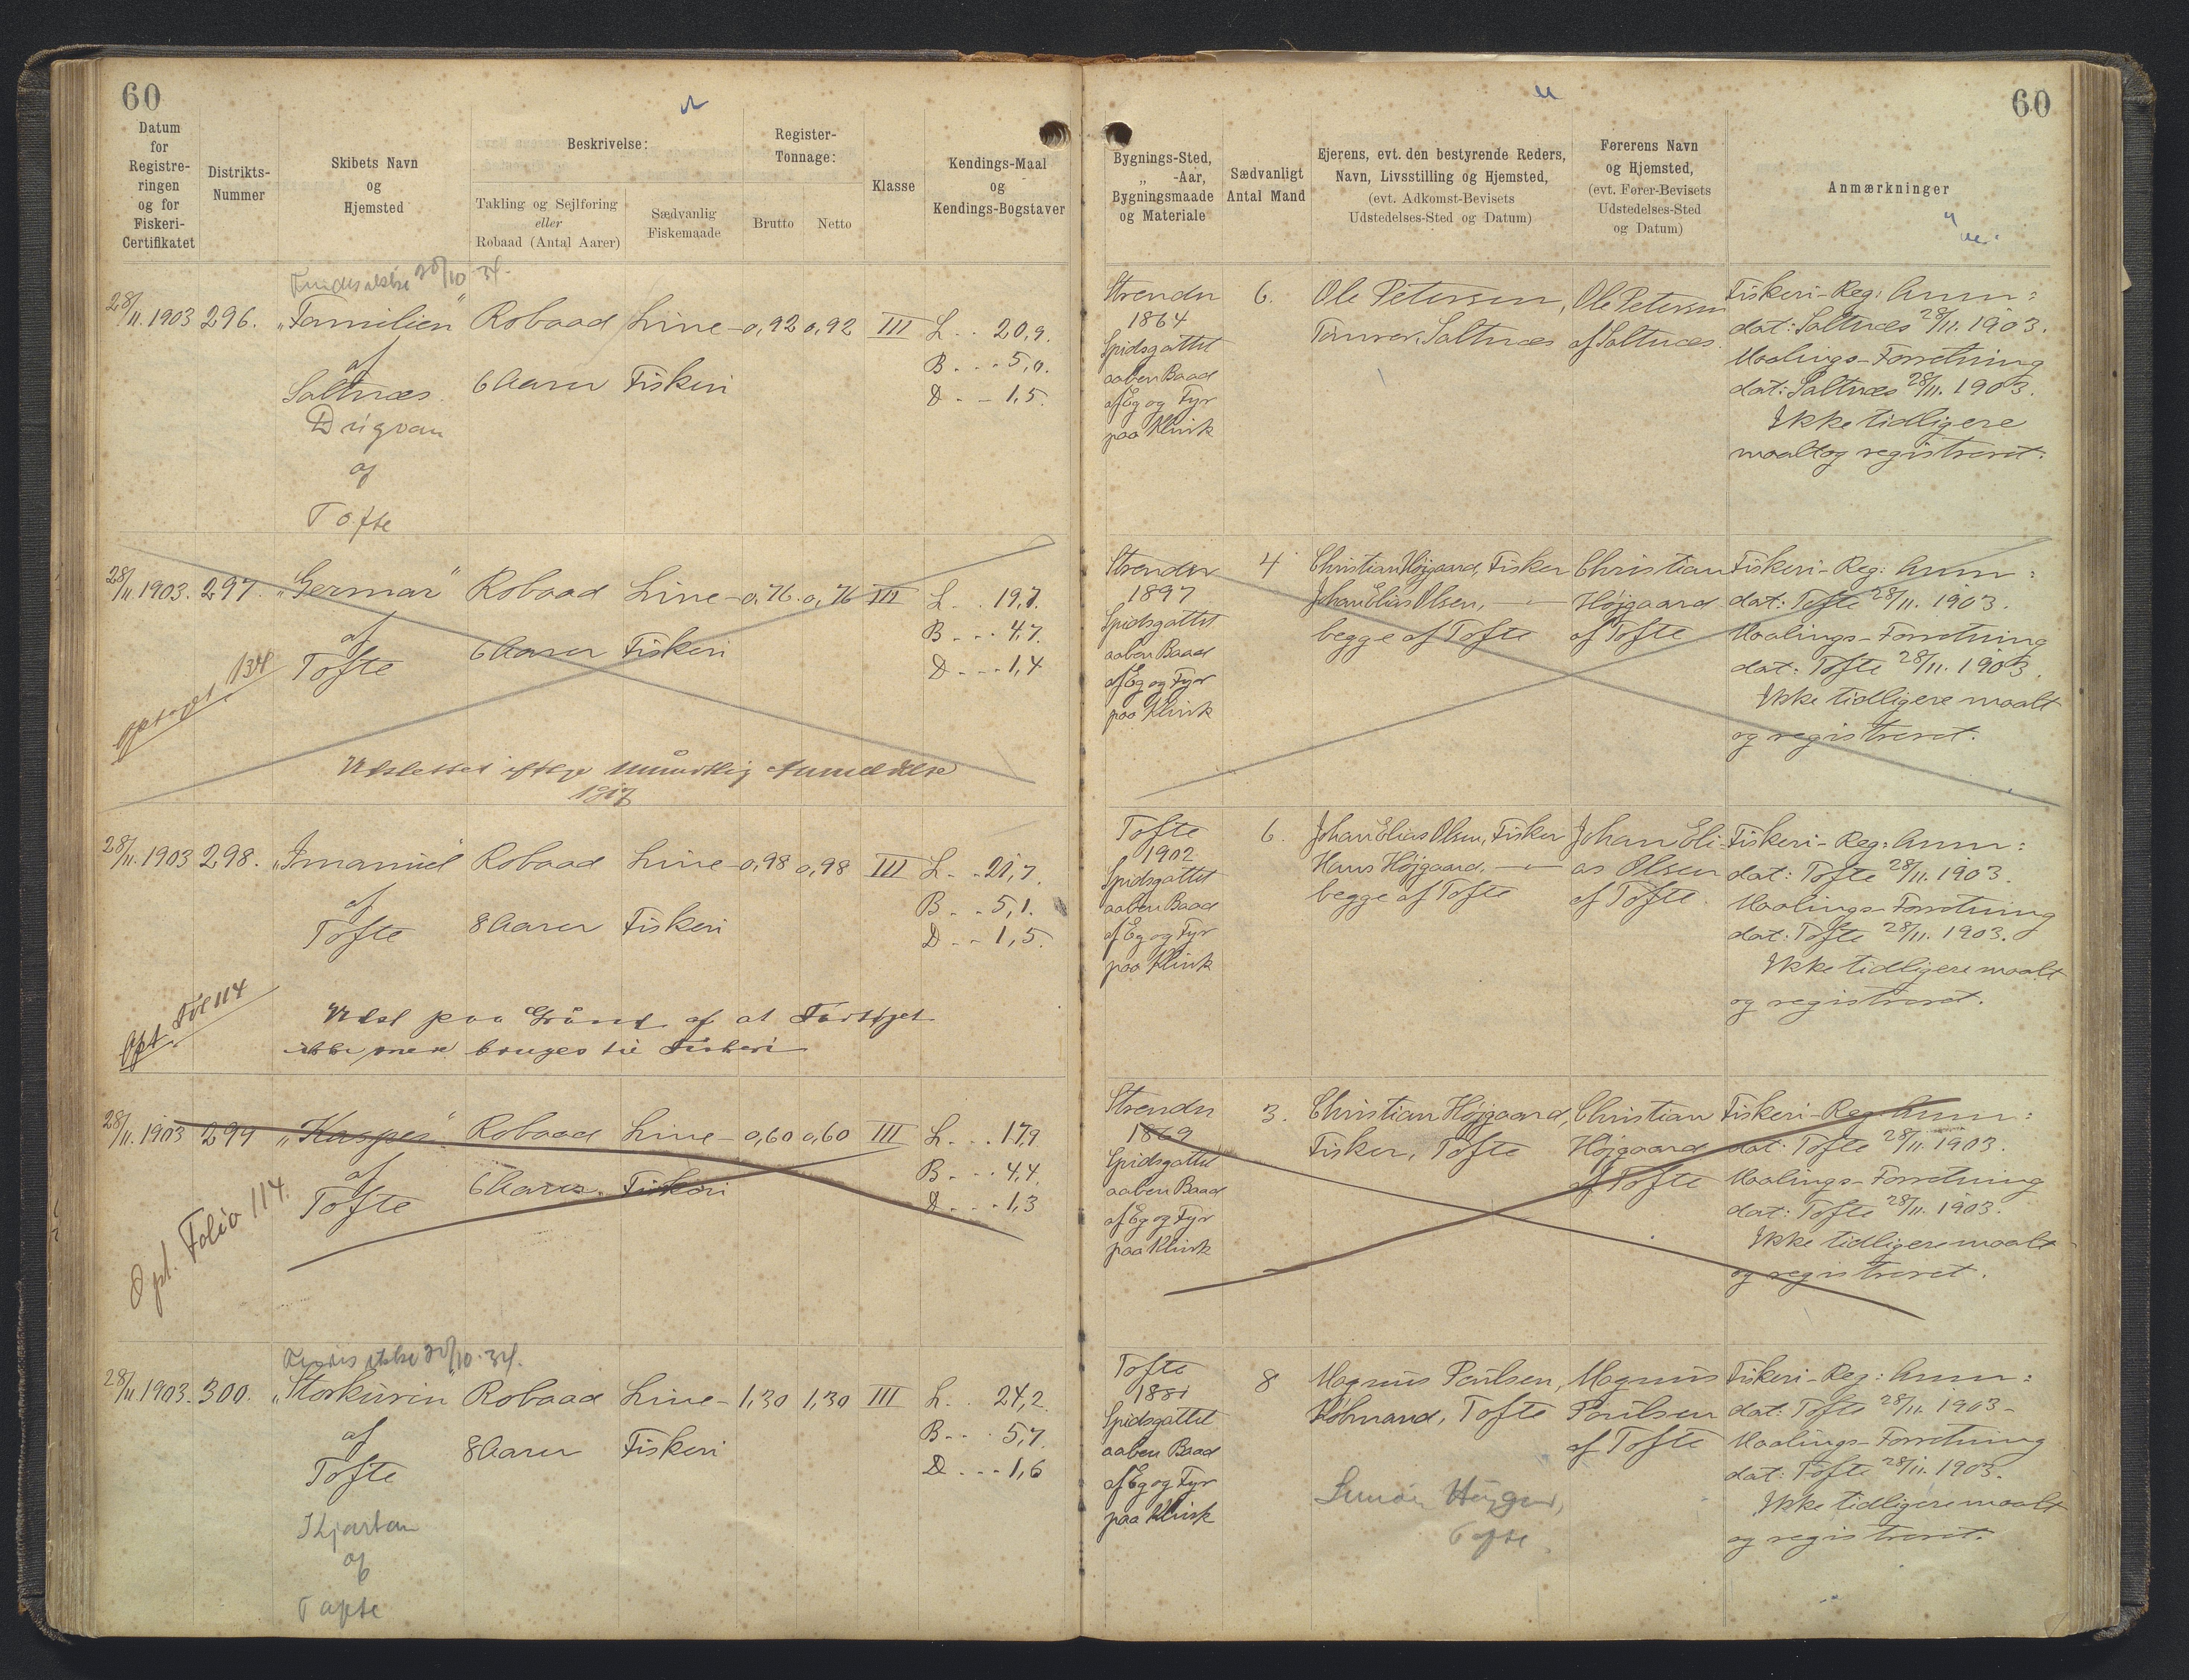 60
Datum
for
Registre-
ringen
og for
Fiskeri-
Certifikatet
Distrikts-
Nummer
Skibets Navn
og
Hjemsted
Beskrivelse:
Takling og Sejlføring
eller
Robaad (Antal Aarer)
Sædvanlig
Fiskemaade
Register-
Tonnage:
Brutto Netto
Klasse
Kendings-Maal
og
Kendings-Bogstaver
Bygnings-Sted,
„ -Aar,
Bygningsmaade
og Materiale
Sædvanligt
Antal Mand
Ejerens, evt. den bestyrende Reders,
Navn, Livsstilling og Hjemsted,
(evt. Adkomst-Bevisets
Udstedelses-Sted og Datum)
Førerens Navn
og Hjemsted,
(evt. Fører-Bevisets
Udstedelses-Sted
og Datum)
Anmærkninger
60
20/10-34.
28/11.1903 296. „Familien" Robaad Line- 0,92 0,92 III L. . 20,9.
af
Saltnæs 6 Aarer Fiskeri B. . . 5,0.
D. - 1,5.
Drigvan
af
Tofte
Strender 6. Ole Petersen, Ole Petersen Fiskeri-Reg: Anm:
1864 Tømrer, Saltnæs af Saltnæs. dat: Saltnæs 28/11. 1903.
Spidsgattet Maalings-Forretning
aaben Baad dat: Saltnæs 28/11. 1903.
af Eg og Fyr Ikke tidligere
paa Klink maalt og registreret.
28/11.1903. 297. „Germar" Robaad Line- 0,76. 0,76 III L. . 19,7.
af 6 Aarer Fiskeri B. . . 4,7.
Tofte D. - - 1,4
134
Udslettet ifølge mundtlig Anmeldelse
1917
Strender 4 Christian Højgaard, Fisker Christian Fiskeri-Reg: Anm:
1897 Johan Elias Olsen, — „ — Højgaard dat: Tofte 28/11. 1903.
Spidsgattet begge af Tofte af Tofte Maalings-Forretning
aaben Baad dat: Tofte 28/11. 1903.
af Eg og Fyr Ikke tidligere maalt
paa Klink og registreret.
28/11.1903 298. „Imanuel Robaad Line- 0,98 0,98 III L. . 21,7.
af 8 Aarer Fiskeri B. . 5,1.
Tofte D. . 1,5.
Opt. Fol 114
Udsl paa Grund af at Fartøjet
ikke mere bruges til Fiskeri
Tofte 6. Johan Elias Olsen, Fisker Johan Eli- Fiskeri-Reg: Anm:
1902 Hans Højgaard, — „ — as Olsen dat: Tofte 28/11. 1903.
Spidsgattet begge af Tofte af Tofte. Maalings-Forretning
aaben Baad dat: Tofte 28/11. 1903.
af Eg og Fyr Ikke tidligere maalt
paa Klink og registreret.
28/11.1903 299 „Kasper" Robaad Line- 0,60 0,60 III L. . . 17,9
af 6 Aarer. Fiskeri B. . . 4,4.
Tofte D. . . 1,3
Opt. Folio 114.
Strender 3. Christian Højgaard, Christian Fiskeri-Reg: Anm:
1869 Fisker, Tofte Højgaard dat: Tofte 28/11. 1903.
Spidsgattet af Tofte Maalings-Forretning
aaben Baad dat: Tofte 28/11. 1903.
af Eg og Fyr Ikke tidligere maalt
paa Klink og registreret.
20/10-34.
28/11.1903. 300. „Storkurin" Robaad Line- 1,30 1,30 III L. . 24,2.
af 8 Aarer Fiskeri B. . . 5,7.
Tofte D. . . 1,6
Kjartan
af
Tofte
Tofte 8 Magnus Poulsen, Magnus Fiskeri-Reg: Anm:
1881 Købmand, Tofte Poulsen dat: Tofte 28/11. 1903-
Spidsgattet af Tofte Maalings-Forretning
aaben Baad dat: Tofte 28/11. 1903.
af Eg og Fyr Ikke tidligere maalt
paa Klink og registreret.
Tofte.